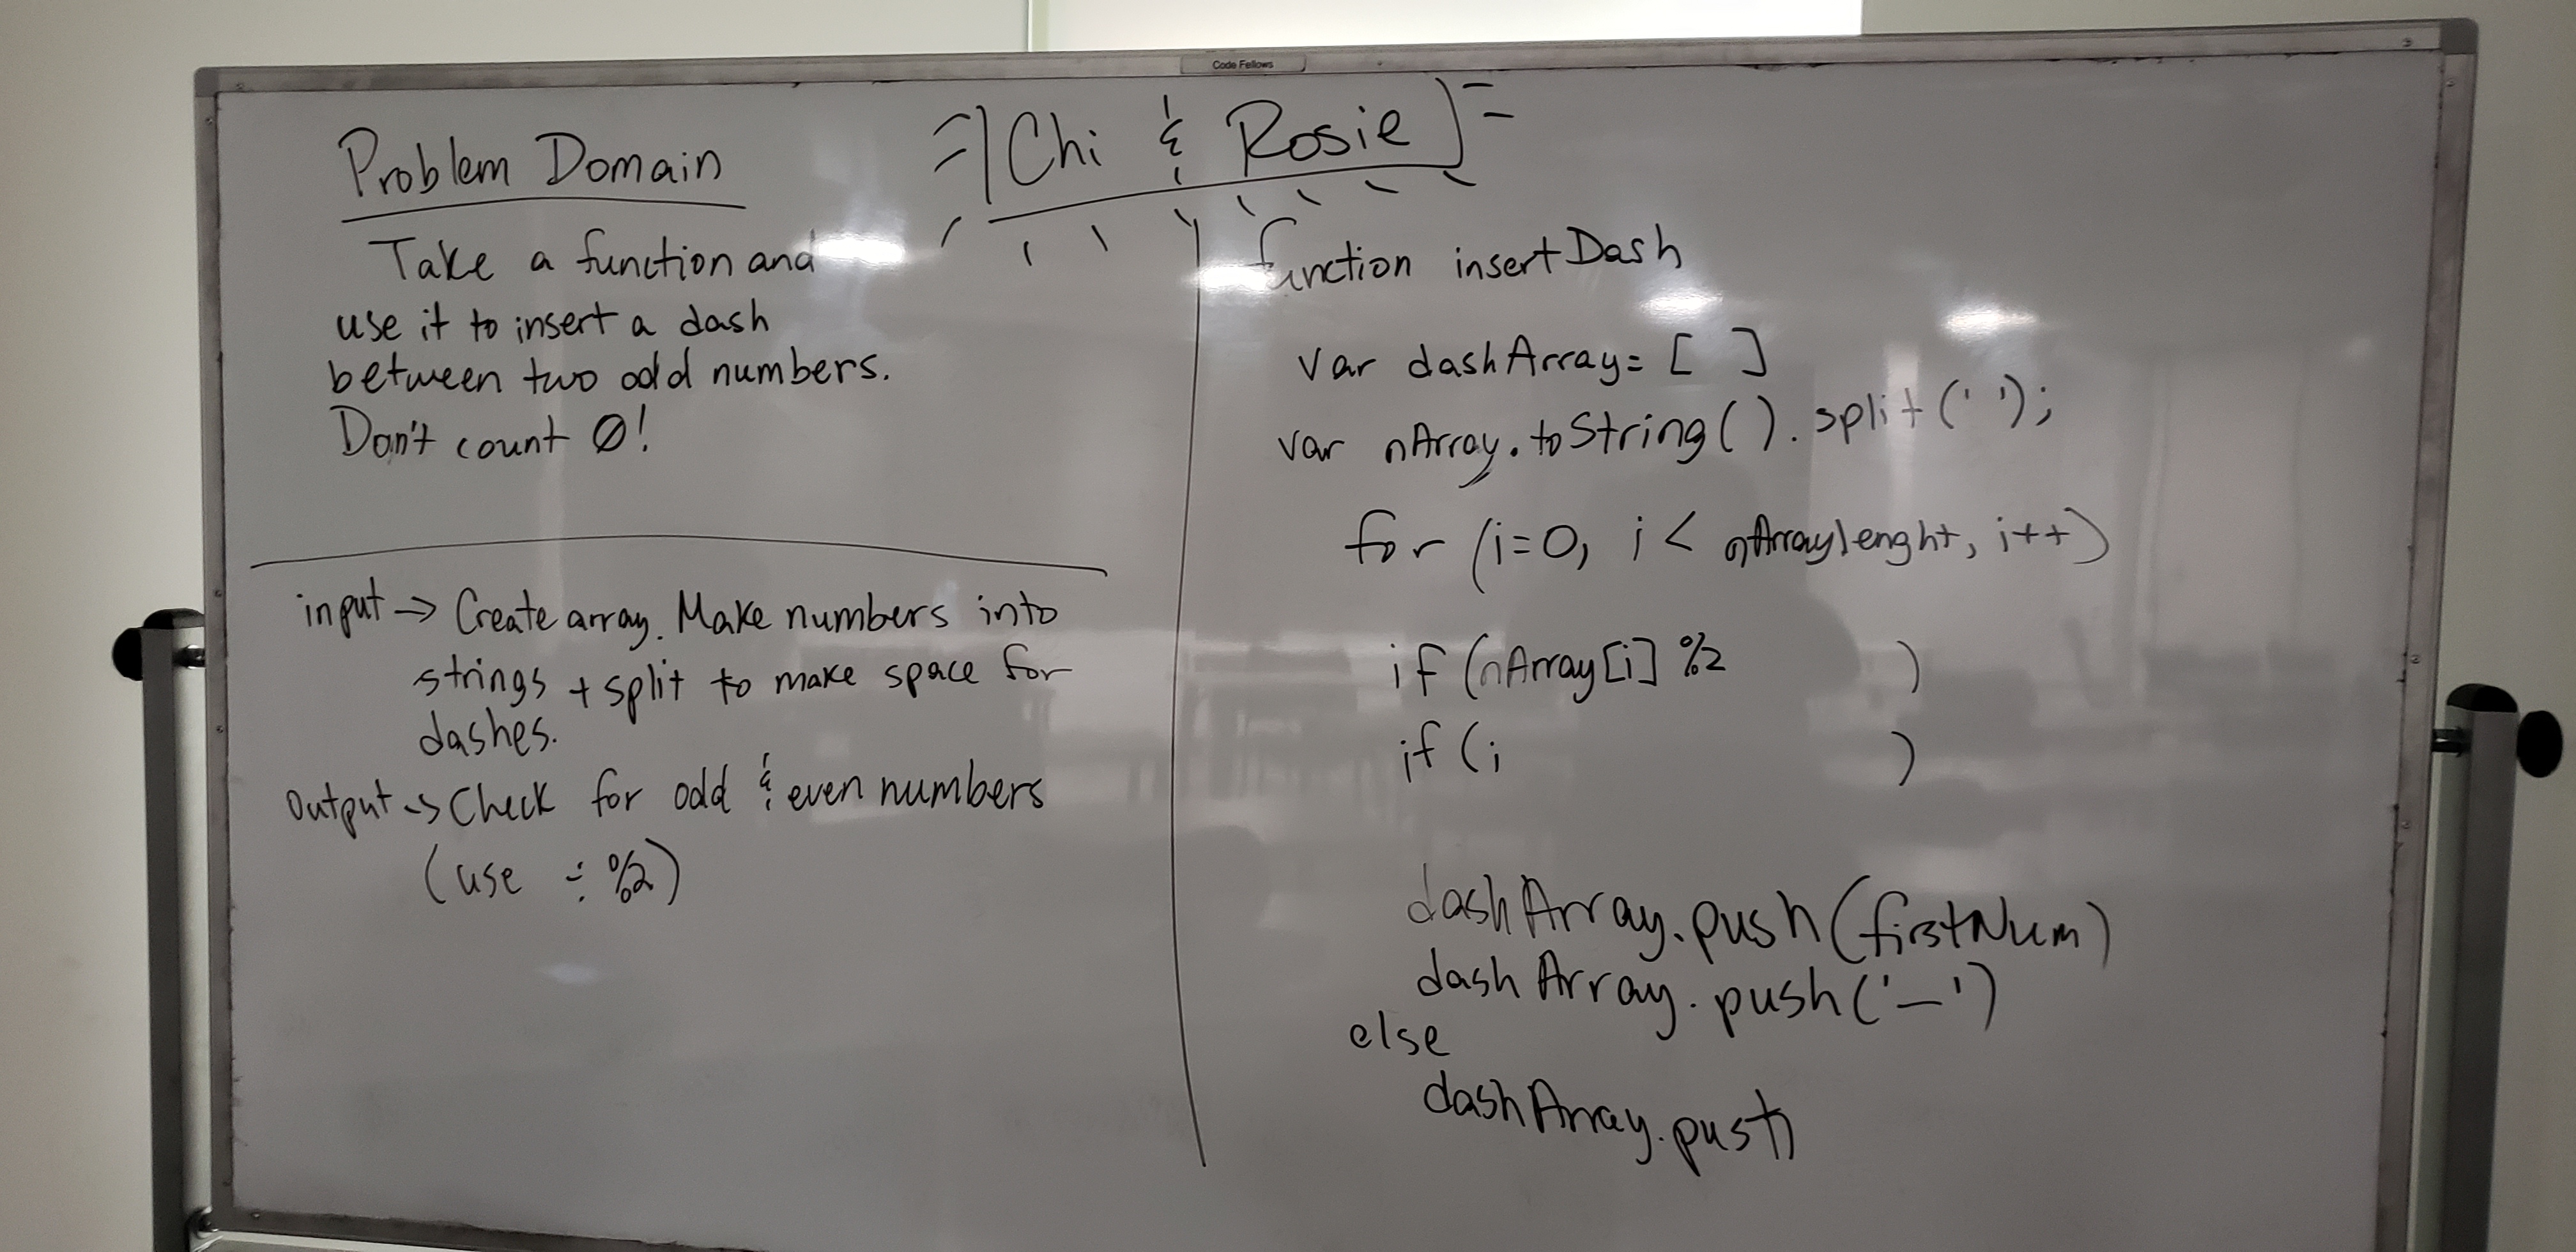 Code Fellows
Chi & Rosie
Problem Domain
Take a function and
use it to insert a dash
between two odd numbers.
Don't count Ø!
input → Create array. Make numbers into
strings + split to make space for
dashes.
Output → Check for odd & even numbers
(use ÷ %2)
function insertDash
var dashArray = [ ]
var nArray.toString().split(' ');
for (i=0, i < nArraylenght, i++)
if (nArray[i] %2 )
if (i )
dashArray.push(firstNum)
dashArray.push('-')
else
dashArray.push